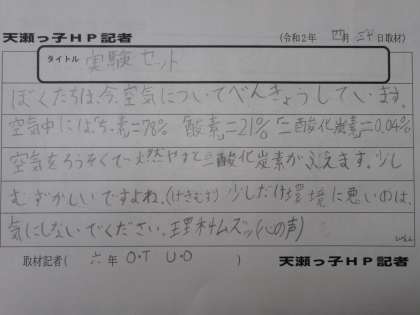 天瀬っ子HP記者 (令和2年 四月 二十四日取材)
タイトル 実験セット
ぼくたちは、今、空気についてべんきょうしています。
空気中には、ちっ素=78% 酸素=21% 二酸化炭素=0.04%
空気をろうそくで燃やすと二酸化炭素がふえます。少し
むずかしいですよね。(けきむず) 少しだけ環境に悪いのは、
気にしないでください。理科ムズッ(心の声)
取材記者( 六年 O・T U・O )
天瀬っ子HP記者